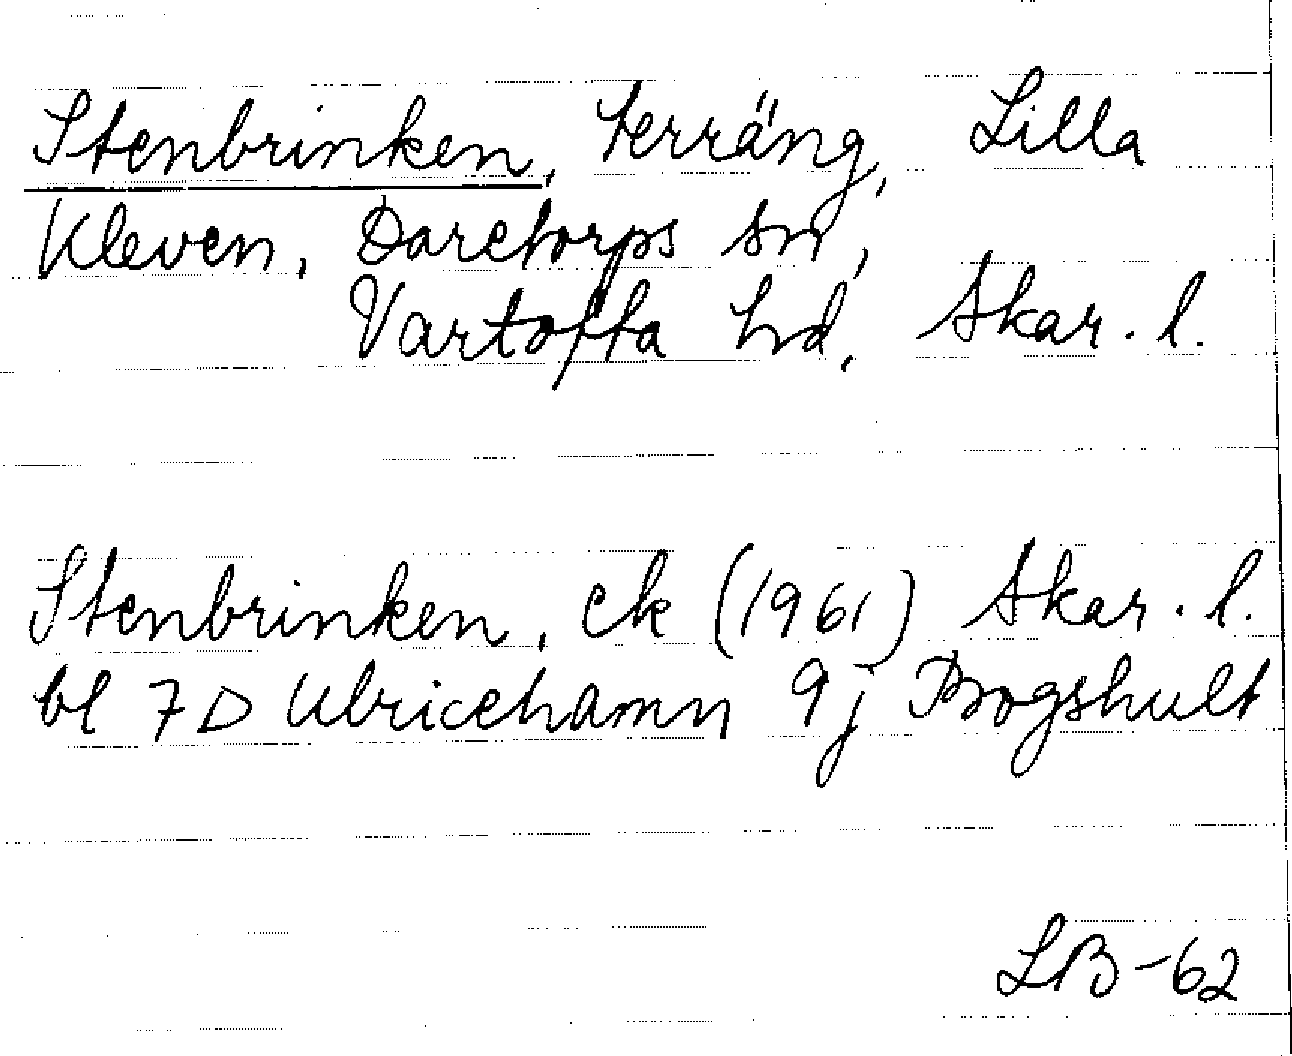 Stenbrinken, terräng, Lilla
Kleven, Daretorps sn,
Vartofta hd, Skar. l.
Stenbrinken, ek (1961) Skar. l.
bl 7D Ulricehamn 9j Brogshult
LB-62